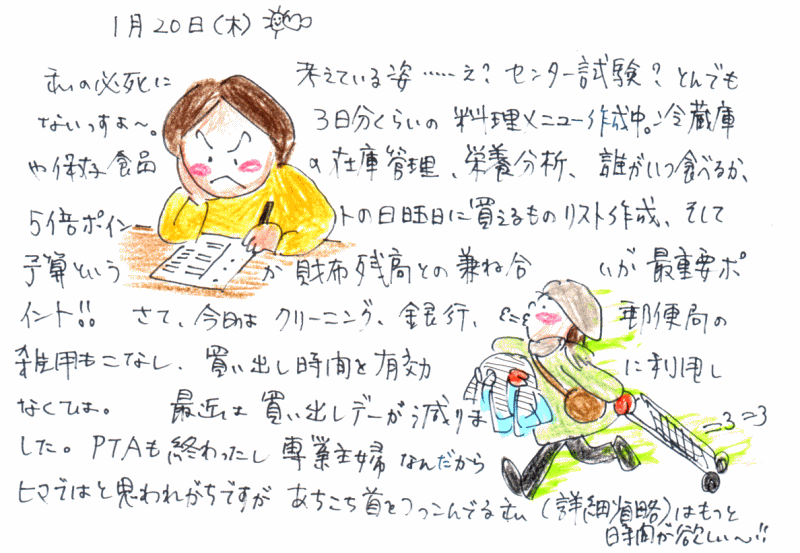 1月20日(木)
私の必死に 考えている姿……え?センター試験?とんでも
ないっすよ〜。 3日分くらいの料理メニュー作成中。冷蔵庫
や保存食品 の在庫管理、栄養分析、誰がいつ食べるか、
5倍ポイン トの日曜日に買えるものリスト作成、そして
予算という か財布残高との兼ね合 いが最重要ポ
イント!! さて、今日はクリーニング、銀行、 郵便局の
雑用もこなし、買い出し時間を有効 に利用し
なくては。 最近は買い出しデーが減りま
した。PTAも終わったし専業主婦なんだから
ヒマではと思われがちですがあちこち首をつっこんでる私(詳細省略)はもっと
時間が欲しい〜!!